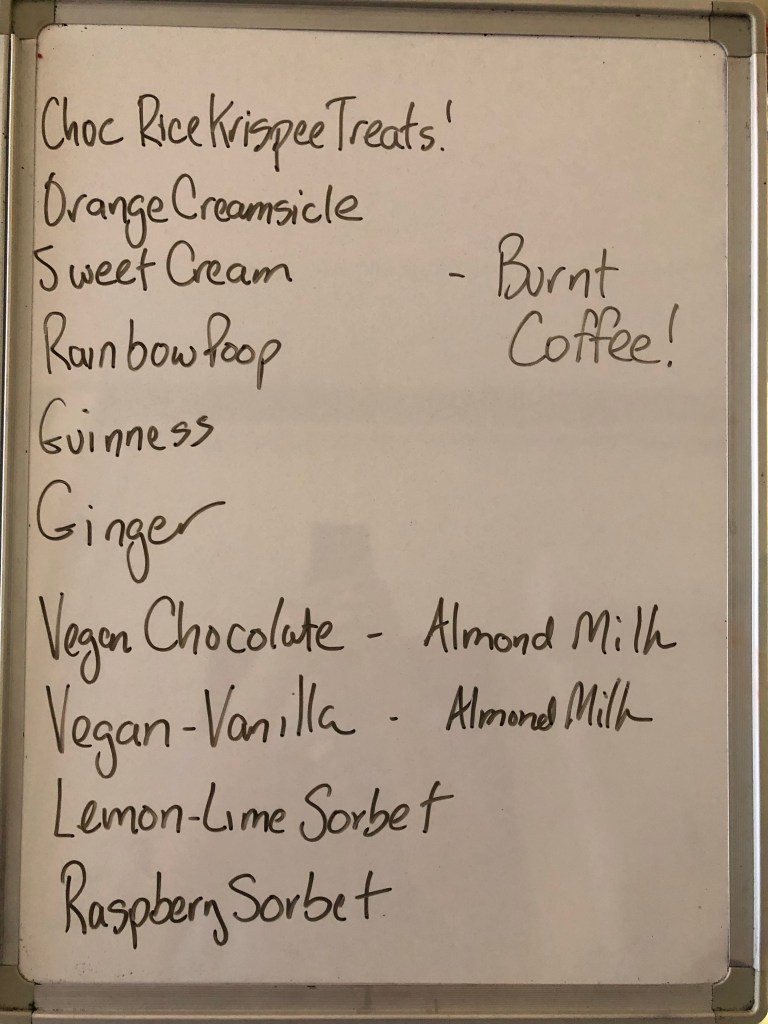 Choc Rice Krispee Treats!
Orange Creamsicle
Sweet Cream - Burnt
Coffee!
Rainbow Poop
Guinness
Ginger
Vegan Chocolate - Almond Milk
Vegan-Vanilla - Almond Milk
Lemon-Lime Sorbet
Raspbery Sorbet